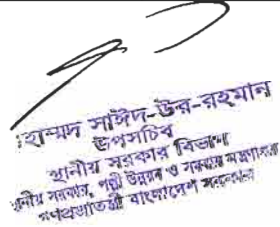 হাম্মদ সাঈদ-উর-রহমান
উপসচিব
স্থানীয় সরকার বিভাগ
স্থানীয় সরকার, পল্লী উন্নয়ন ও সমবায় মন্ত্রণালয়
গণপ্রজাতন্ত্রী বাংলাদেশ সরকার